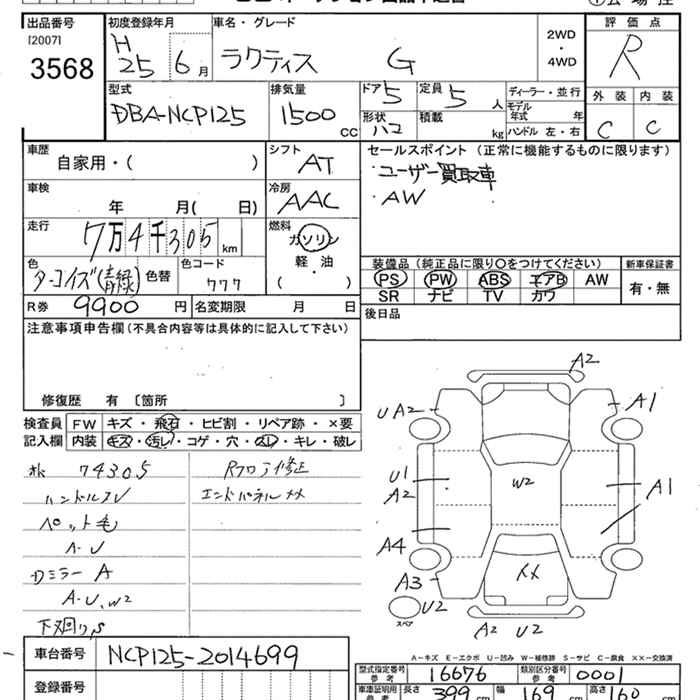 出品番号
[2007]
3568
初度登録年月
H
25 6 月
車名・グレード
ラクティス G
2WD
・
4WD
評価点
R
型式
DBA-NCP125
排気量
1500
CC
ドア 5
定員 5 人
形状 ハコ
積載 kg
ディーラー・並行
モデル年式 年
ハンドル 左・右
外装 内装
C C
車歴
自家用・( )
シフト
AT
セールスポイント (正常に機能するものに限ります)
・ユーザー買取車
・AW
車検
年 月( 日)
冷房
AAC
走行
7万4千305 km
燃料
ガソリン
軽・油
( )
色
ターコイズ(青緑)
色替
色コード
777
装備品 (純正品に限り○をつけてください)
PS PW ABS エアB AW
SR ナビ TV カワ
新車保証書
有・無
R券 9900 円
名変期限 月 日
後日品
注意事項申告欄(不具合内容等は具体的に記入して下さい)
修復歴 有 〔箇所 〕
検査員記入欄
FW キズ・飛石・ヒビ割・リペア跡・×要
内装 キズ・汚レ・コゲ・穴・スレ・キレ・破レ
74305
ハンドルスレ
ペット毛
A・U
ミラー A
A・U、W2
下廻りS
Rフロア修正
エンドパネル××
A2
UA2
A1
U1
A2
W2
A1
A4
××
A3
U2
スペア
A2 U2
A-キズ E-エクボ U-凹み W-補修跡 S-サビ C-腐食 ××-交換済
車台番号 NCP125-2014699
登録番号
型式指定番号 参考 16676
類別区分番号 参考 0001
車庫証明用 参考 長さ 399 cm 幅 169 cm 高さ 160 cm